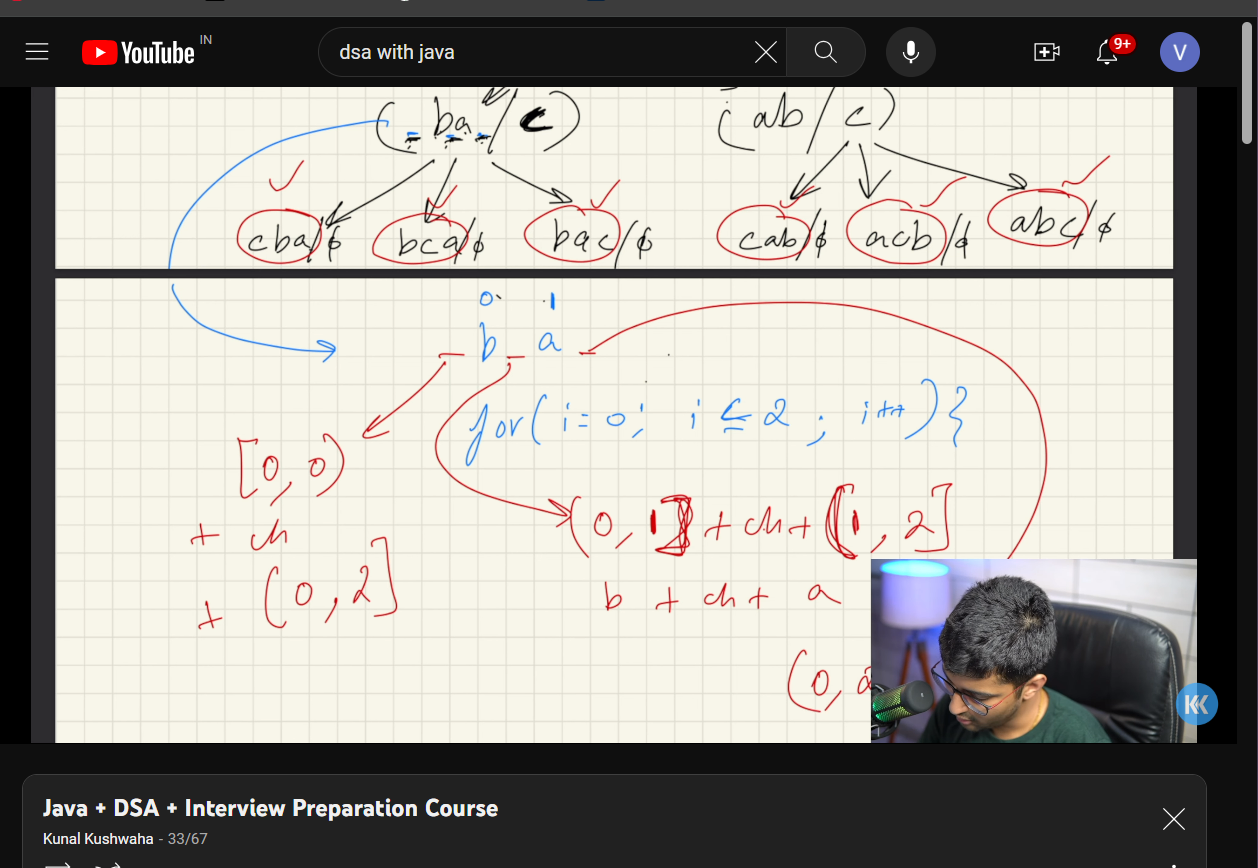 YouTube IN
dsa with java
9+
V
(_ba_/c) (ab/c)
cba/ϕ bca/ϕ bac/ϕ cab/ϕ acb/ϕ abc/ϕ
0 1
_ b _ a _
for(i=0; i ≤ 2 ; i++){
[0, 0)
+ ch
+ (0, 2]
(0, 1] + ch + [1, 2]
b + ch + a
(0,
Java + DSA + Interview Preparation Course
Kunal Kushwaha - 33/67